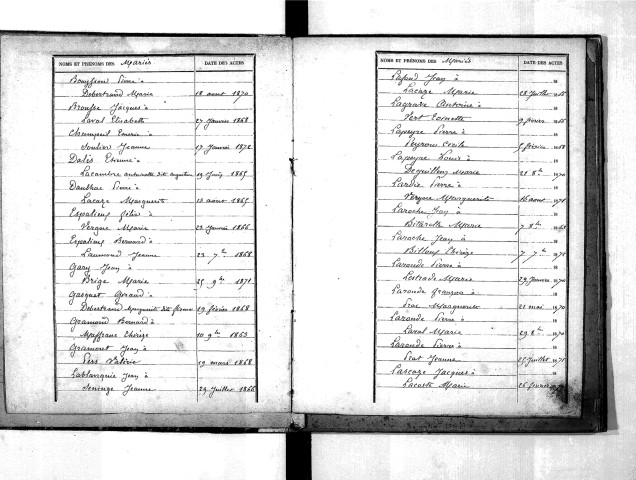 NOMS ET PRÉNOMS DES Mariés DATE DES ACTES
Bouyssou Pierre à
Debertrand Marie 18 aout 1870
Brousse Jacques à
Laval Elisabeth 27 Janvier 1868
Champeil Emeric à
Soulier Jeanne 17 Janvier 1872
Dalès Etienne à
Lacambre antoinette dit 19 Juin 1865
Danthac Pierre à
Lacaze Marguerite 12 aout 1865
Espalieus Félix à
Vergne Marie 23 Janvier 1866
Espalieus Bernard à
Laumond Jeanne 23 7bre 1868
Gary Jean à
Brige Marie 25 9bre 1871
Gasquet Géraud à
Debertrand Marguerite dit 19 février 1868
Gramond Bernard à
Maffrane Thérèze 10 9bre 1863
Gramont Jean à
Pers Valérie 19 mars 1868
Lablanquie Jean à
Seninge Jeanne 29 Juillet 1866
NOMS ET PRÉNOMS DES Mariés DATE DES ACTES
Jean à 18
Lacaze Marie 28 Juillet
Lagraive Antoine à 18
Vert 9 février
Lapeyre Pierre à 18
Peyrou Cécile 5 février 1868
Lapeyre Louis à 18
Marie 21 8bre 1870
Pierre à 18
Vergne Marguerite 16 aout 1871
Laroche Jean à 18
Bitarelle Marie 7 8bre
Laroche Jean à 18
Thérèze 7 7bre 1871
Laronde Pierre à 18
Lestrade Marie 29 Janvier 1870
Laronde François à 18
Prac Marguerite 21 mai 1870
Laronde Pierre à 18
Laval Marie 29 8bre 1870
Laronde Pierre à 18
Prat Jeanne 25 Juillet 1871
Lascaze Jacques à 18
Lacoste Marie 26 février